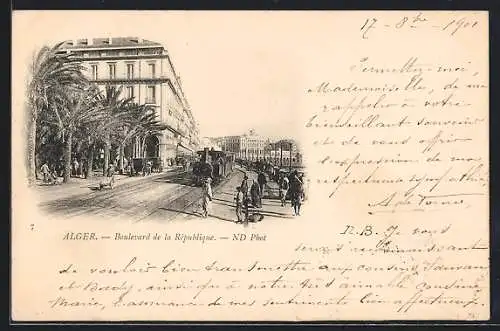 17 - 8bre - 1901
Permettez-moi,
Mademoiselle, de me
rappeler à votre
bienveillant souvenir
et de vous offrir
l'expression de mes
respectueuses sympathies,
7
ALGER. — Boulevard de la République. — ND Phot
N.B. Je vous
serais reconnaissant
de vouloir bien transmettre aux cousins
et ainsi qu'à notre très aimable cousine
Marie, l'assurance de mes sentiments bien affectueux.